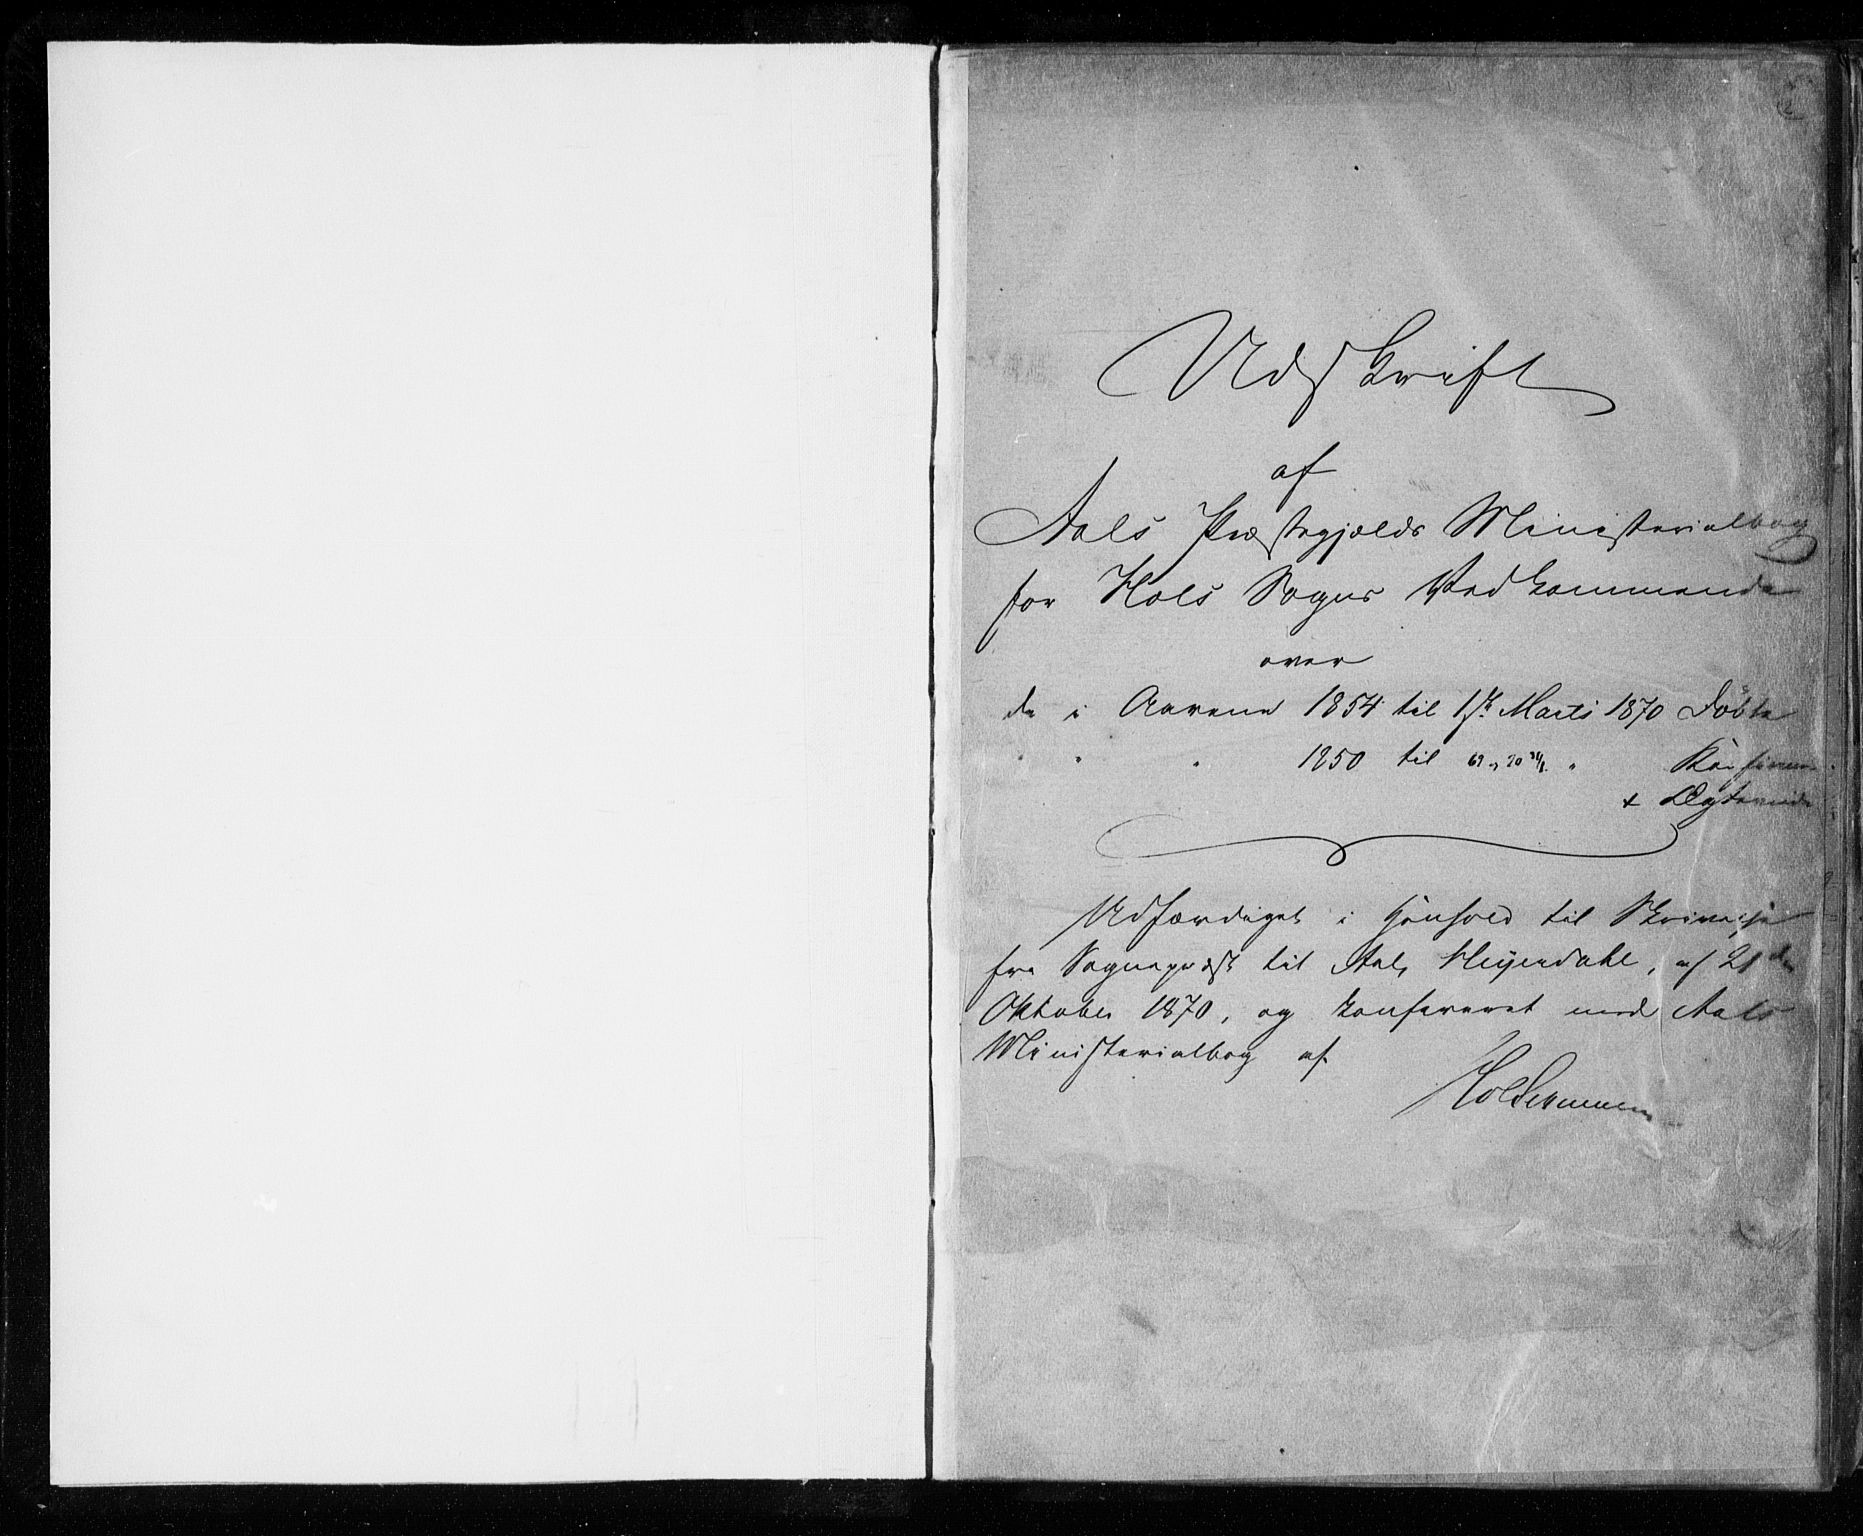 Udskrift
af
Aals Præstegjælds Ministerialbog
for Hols Sogns Vedkommende
over
de i Aarene 1854 til 1ste Marts 1870 Döbte
" " " 1850 til 69 og 70 " Konfirmer
+ Ægteviede
Udfærdiget i Henhold til Skrivelse
fra Sognepræst til Aal, Heyerdahl, af 21de
Oktober 1870, og konfereret med Aals
Ministerialbog af